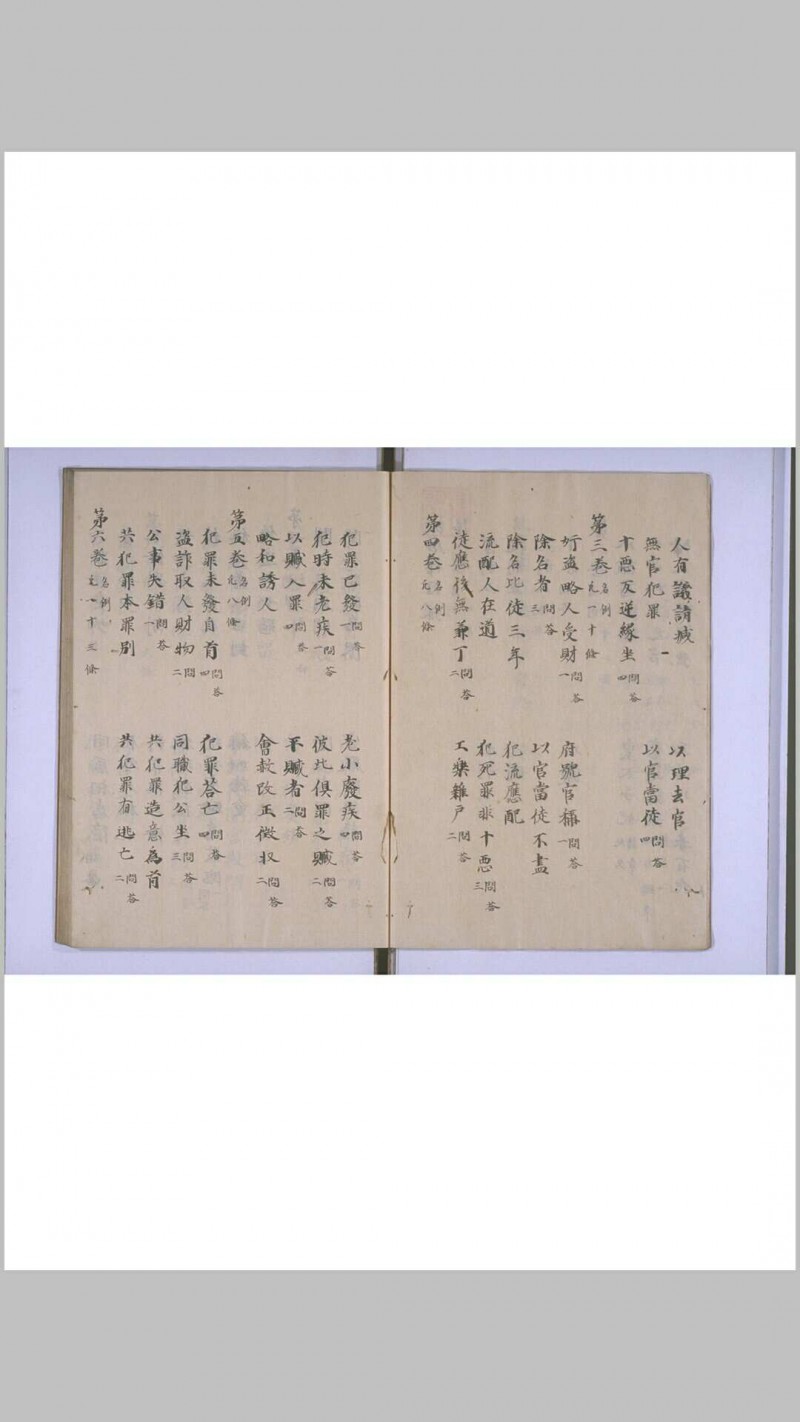 人有議請減 以理去官
無官犯罪 以官當徒 問答四
十惡反逆緣坐 問答四
第三卷 名例 凡一十條
奸盗略人受財 問答一 府號官稱 問答一
除名者 問答三 以官當徒不盡
除名比徒三年 犯流應配
流配人在道 犯死罪非十惡 問答三
徒應役無兼丁 問答二 工樂雜戶 問答二
第四卷 名例 凡八條
犯罪已發 問答一 老小廢疾 問答四
犯時未老疾 問答一 彼此俱罪之贓 問答二
以贓入罪 問答四 平贓者 問答二
略和誘人 會赦改正徵收 問答二
第五卷 名例 凡八條
犯罪未發自首 問答四 犯罪荅亡 問答四
盗詐取人財物 問二 同職犯公坐 問答三
公事失錯 問答一 共犯罪造意為首
共犯罪本罪別 共犯罪有逃亡 問答二
第六卷 名例 凡一十三條